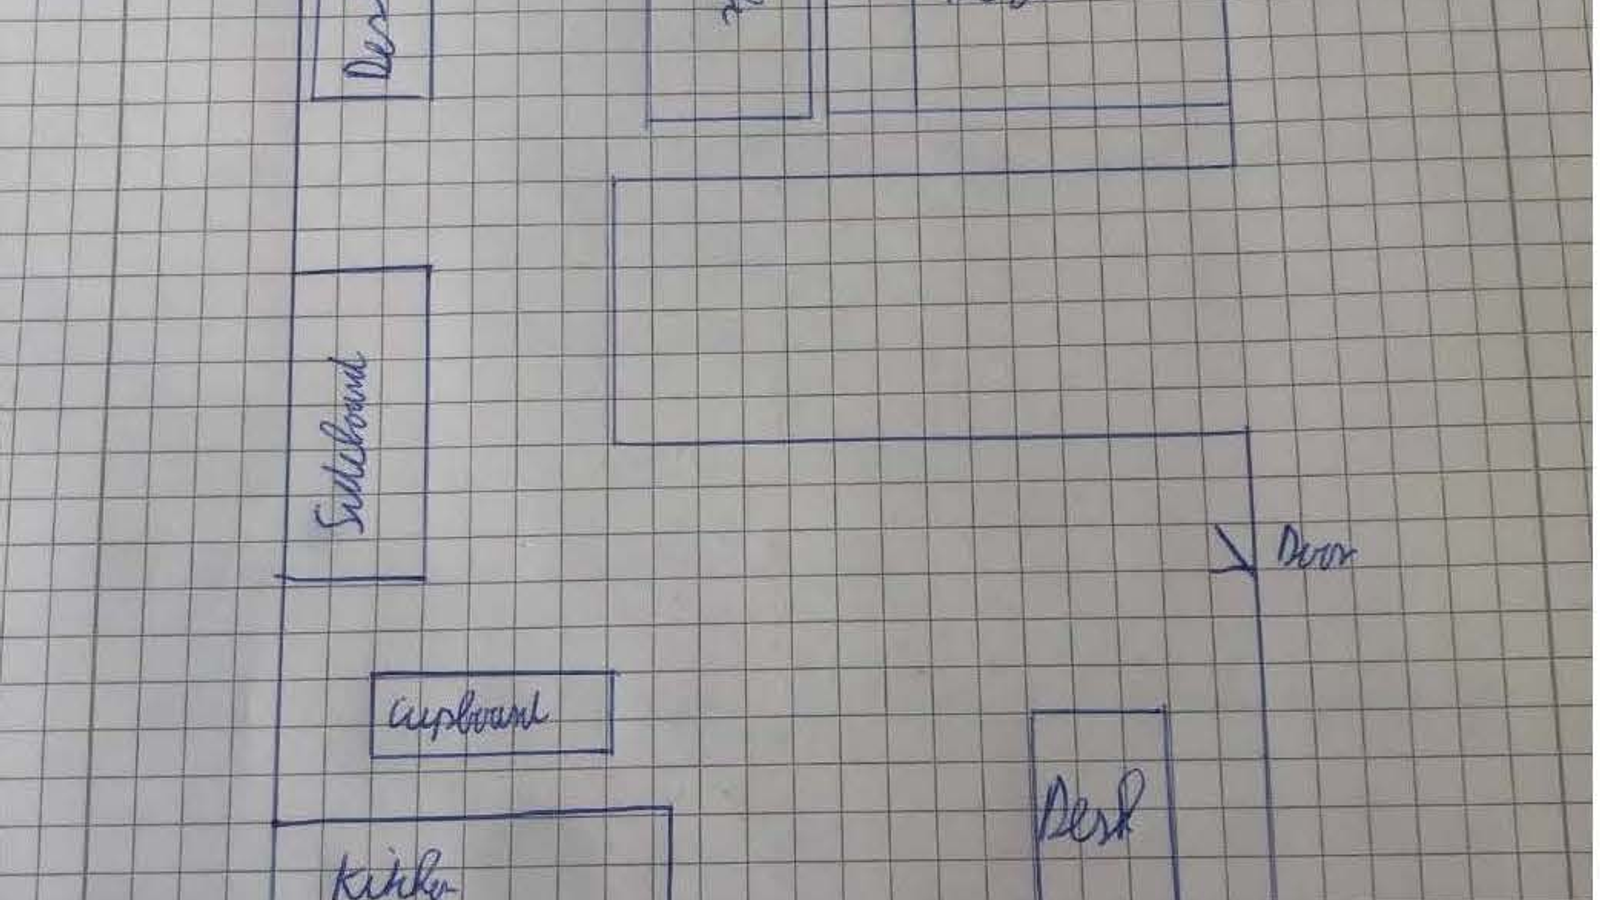 Des
Sideboard
Door
Cupboard
Desk
Kitchen